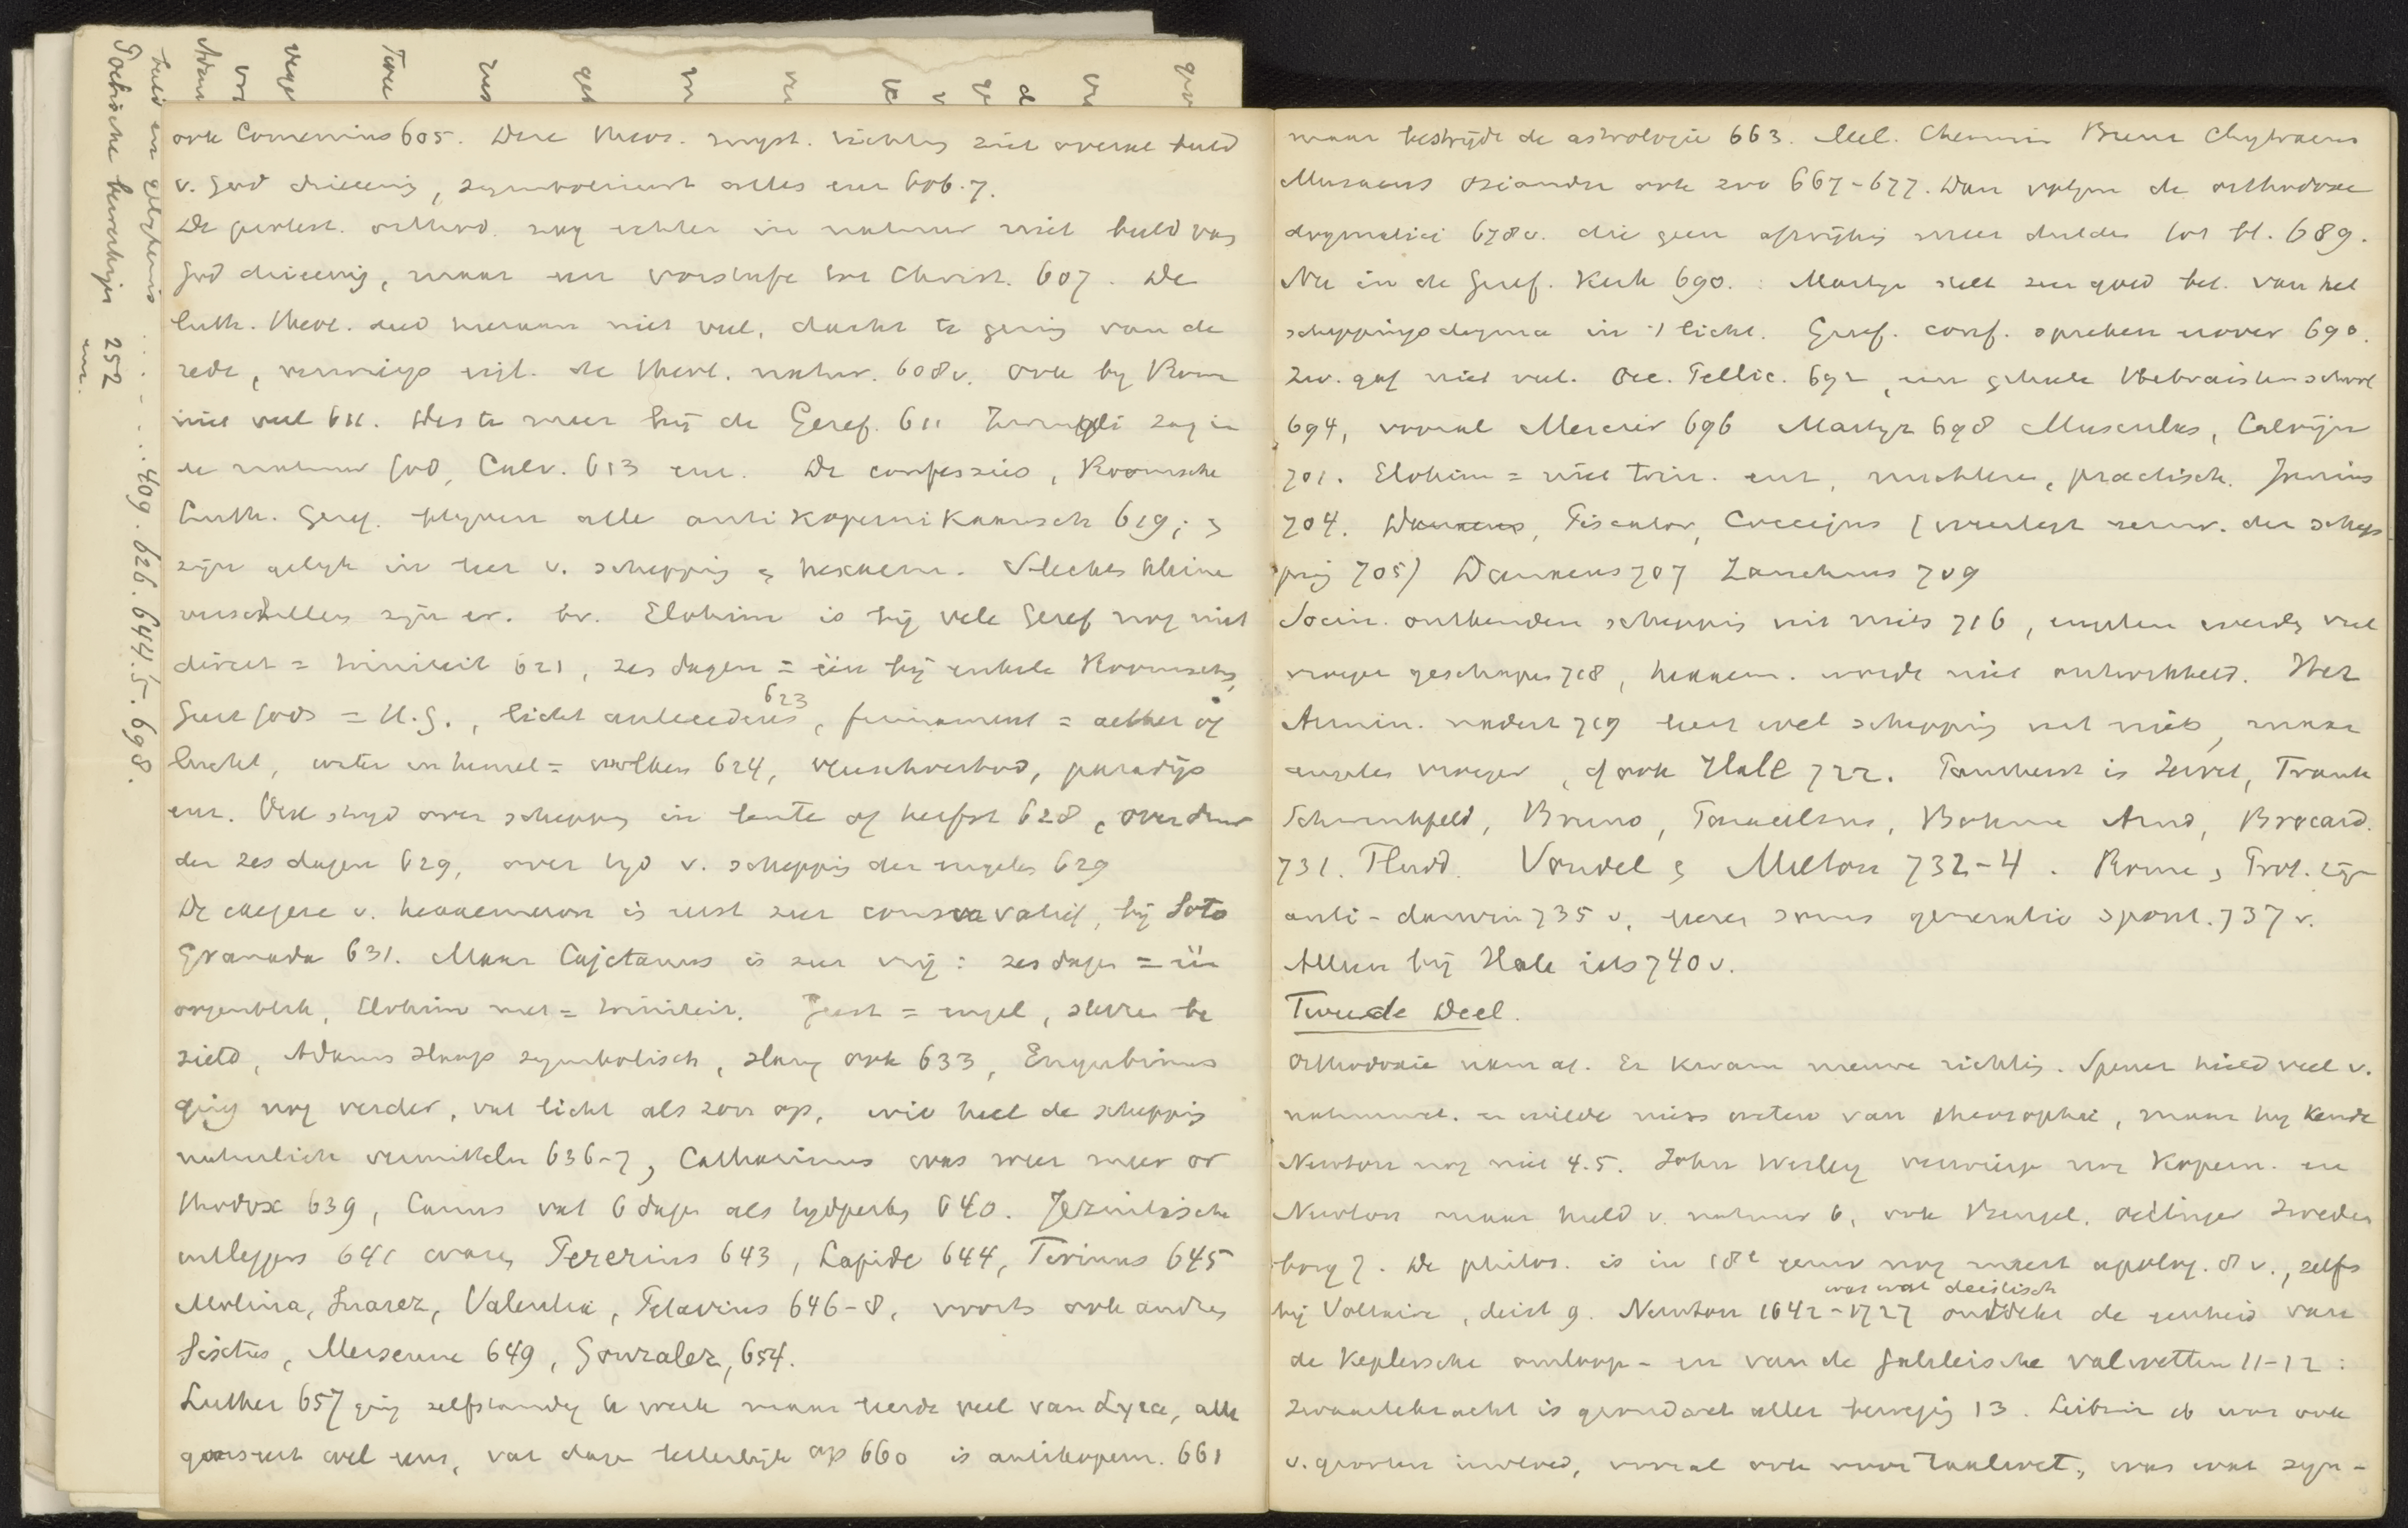 beeld en gelijkenis ..... 409. 626. 644.5. 698.
Poetische bewerkingen 252
enz.
ook Comenius 605. Deze theos. myst. richting ziet overal beeld
v. God drieeenig, symboliseert alles enz 606.7.
De protest. orthod. zag echter in natuur niet beeld van
God drieeenig, maar een voorstufe tot Christ. 607. De
luth. theol. deed hieraan niet veel, dacht te gering van de
rede, verwierp vijl. de theol. natur. 608v. Ook by Rome
niet veel 611. Des te meer bij de Geref. 611 Zwingli zag in
de natuur God, Calv. 613 enz. De confessies, Roomsche
Luth. Geref. blyven alle antikopernikaansch 619; &
zijn gelijk in leer v. schepping & hexaem. Slechts kleine
verschillen zijn er. bv. Elohim is bij vele Geref nog niet
direct = triniteit 621, zes dagen = één bij enkele Roomschen,
Geest Gods = H.G., licht antecedens 623, firmament = aether of
lucht, water en hemel = wolken 624, vleeschverbod, paradijs
enz. Ook strijd over schepping in lente of herfst 628, over duur
der zes dagen 629, over tijd v. schepping der engelen 629
De exegese v. hexaemeron is eerst zeer conservatief, bij Soto
Granada 631. Maar Cajetanus is zeer vrij: zes dagen = één
oogenblik, Elohim niet = triniteit. Geest = engel, sterren be
zield, Adams slaap symbolisch, slang ook 633, Eugubinus
ging nog verder, vat licht als zon op, wil heel de schepping
natuurlich vermitteln 636-7, Catharinus was weer meer or
thodox 639, Canus vat 6 dagen als tijdperken 640. Jezuitische
uitleggers 641 waren Pererius 643, Lapide 644, Tirinus 645
Molina, Suarez, Valentia, Petavius 646-8, voorts ook andere
Sixtus, Mersenne 649, Gonzalez, 654.
Luther 657 ging zelfstandig te werk maar leerde veel van Lyra, alle
geest wel eens, vat dagen letterlijk op 660 is antikopern. 661
maar bestrijdt de astrologie 663. Mel. Chemn. Brenz Chytraeus
Musaeus Osiander ook zoo 667-677. Dan volgen de orthodoxe
dogmatici 678v. die geen afwijking meer dulden tot bl. 689.
Nu in de Geref. Kerk 690. : Martyr stelt zeer goed bet. van het
scheppingsdogma in 't licht. Geref. conf. spreken erover 690.
Zw. gaf niet veel. Oec. Pellic. 692, een geheele Hebraistenschool
694, vooral Mercier 696 Martyr 698 Musculus, Calvijn
701. Elohim = niet trin. enz, nuchter, practisch. Junius
704. Danaeus, Piscator, Coccejus (voorlegt die schep
ping 705) Danaeus 707 Zanchius 709
Socin. ontkenden schepping uit niets 716, engelen waren veel
vroeger geschapen 718, hexaem. werd niet ontwikkeld. Het
Armin. nadert 719 leert wel schepping uit niets, maar
engelen vroeger, of ook Hale 722. Pantheist is Servet, Frank
Schwenkfeld, Bruno, Paracelsus, Böhme Arnd, Brocard.
731. Fludd. Vondel & Milton 732-4. Rome & Prot. zijn
anti-darwin 735v, leeren soms generatio spont. 737v.
Alleen bij Hale iets 740v.
Tweede Deel.
Orthodoxie nam af. Er kwam nieuwe richting. Spener hield veel v.
natuurwet. en wilde niets weten van theosophie, maar hij kende
Newton nog niet 4.5. John Wesley verwierp nog Kopern. en
Newton maar hield v. natuur 6, ook Bengel. Oetinger Sweden
borg 7. De philos. is in 18e eeuw nog meest apolog. 8v., zelfs
bij Voltaire, deist 9. Newton 1642-1727 was wat deistisch ontdekt de eenheid van
de Keplersche omloop- en van de Galileische valwetten 11-12:
zwaartekracht is grondwet aller beweging 13. Leibniz ook was ook
v. grooten invloed, vooral ook voor taalwet., was wat syn-